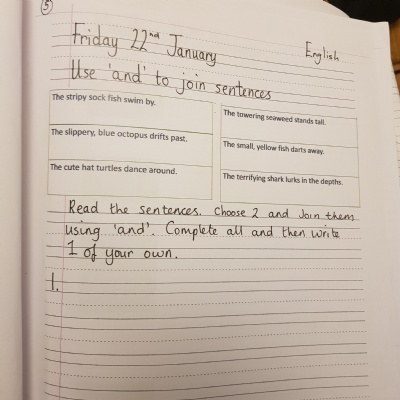 5
Friday 22nd January
English
Use 'and' to join sentences
The stripy sock fish swim by.
The slippery, blue octopus drifts past.
The cute hat turtles dance around.
The towering seaweed stands tall.
The small, yellow fish darts away.
The terrifying shark lurks in the depths.
Read the sentences. Choose 2 and Join them
using 'and'. Complete all and then write
1 of your own.
1.